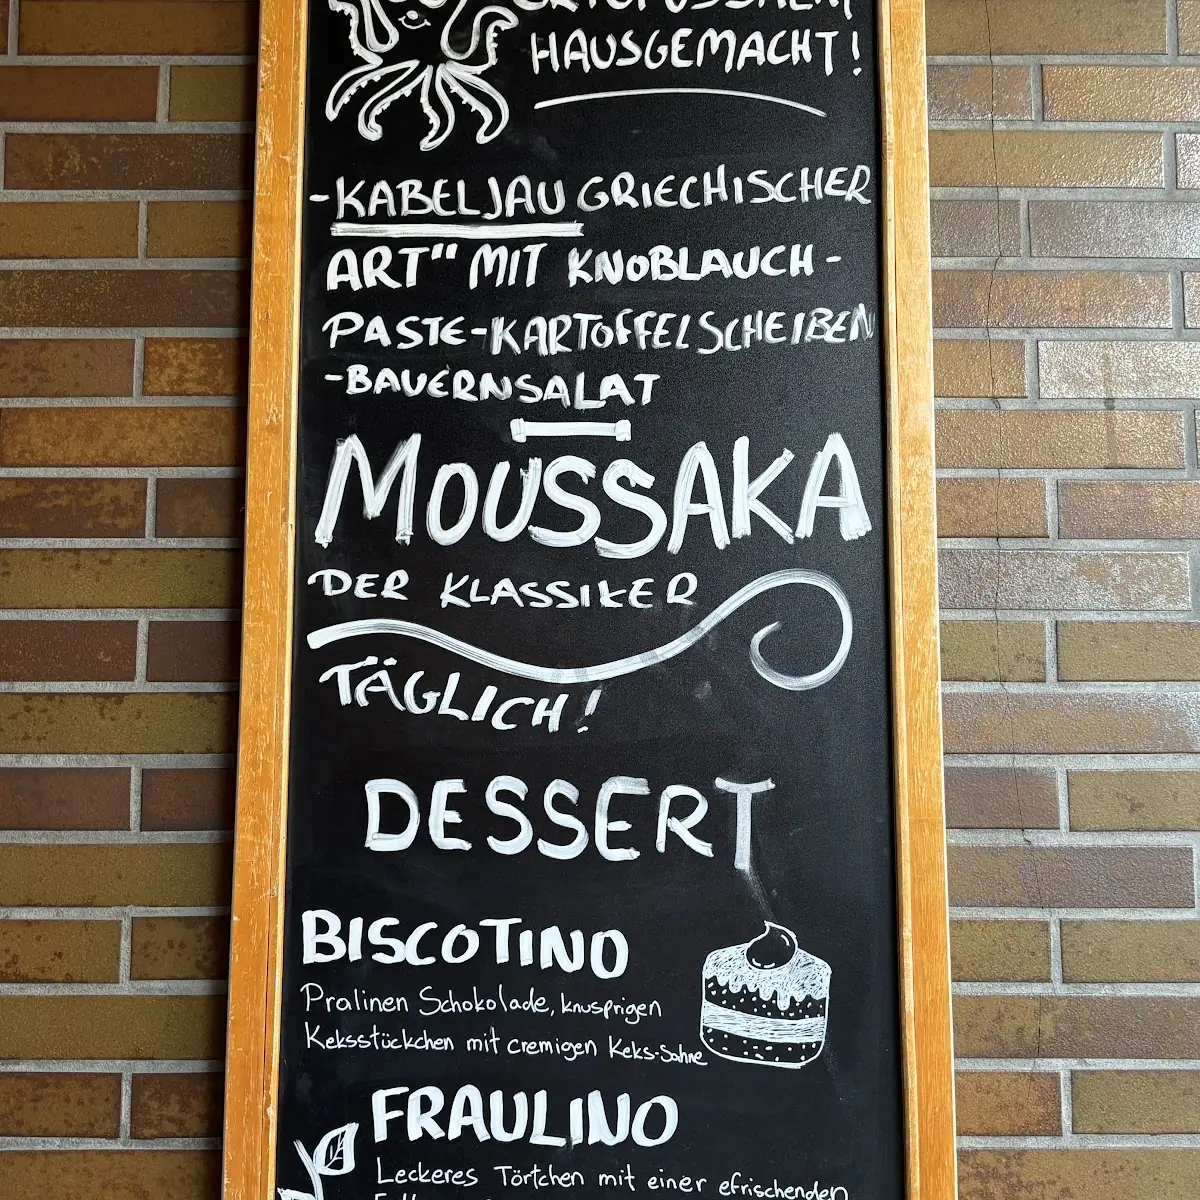 HAUSGEMACHT!
-KABELJAU GRIECHISCHER
ART" MIT KNOBLAUCH-
PASTE-KARTOFFELSCHEIBEN
-BAUERNSALAT
MOUSSAKA
DER KLASSIKER
TÄGLICH!
DESSERT
BISCOTINO
Pralinen Schokolade, knusprigen
Keksstückchen mit cremigen Keks-Sahne
FRAULINO
Leckeres Törtchen mit einer efrischenden